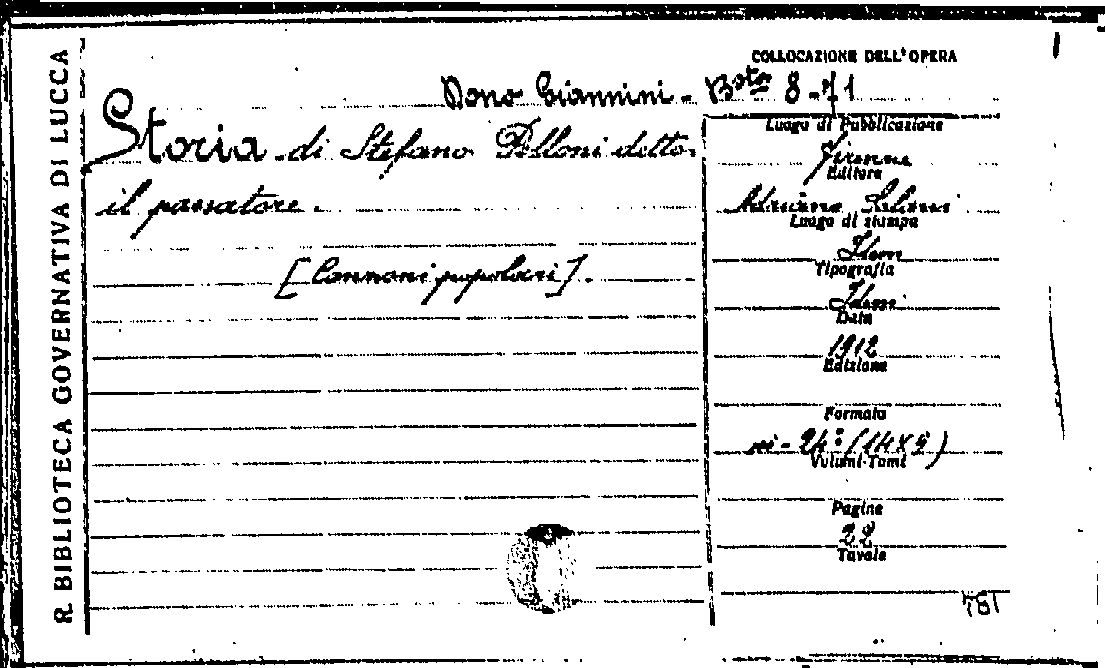 R. BIBLIOTECA GOVERNATIVA DI LUCCA
COLLOCAZIONE DELL'OPERA
Dono Giannini - Bta 8-71
Storia di Stefano Pelloni detto
il passatore.
[Canzoni popolari].
Luogo di Pubblicazione
Firenze
Editore
Adriano Salani
Luogo di stampa
Idem
Tipografia
Idem
Data
1912
Edizione
Formato
in-24° (14x9)
Volumi-Tomi
Pagine
22
Tavole
781